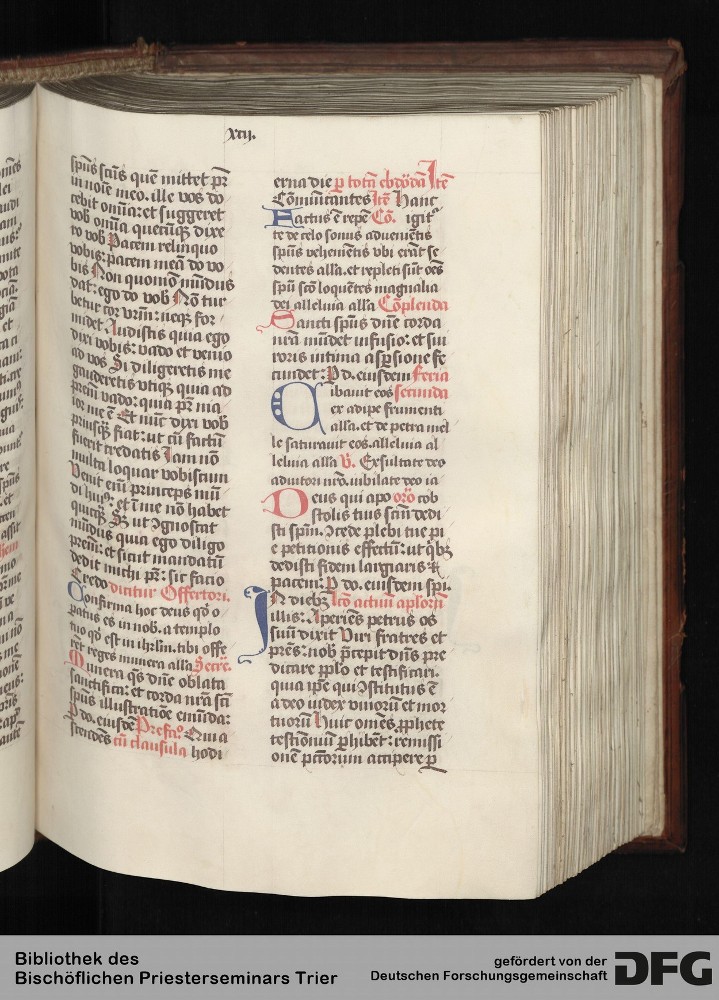 xcij.
spūs scūs quē mittet pr̄
in noīe meo. ille vos do
cebit om̄ia: et suggeret
vob om̄ia quecūqꝫ dixe
ro vob Pacem relinquo
vobis: pacem meā do vo
bis Non quomō mūdus
dat: ego do vob Nō tur
betur cor vrm̄: neqꝫ for
midet Audistis quia ego
dixi vobis: vado et venio
ad vos Si diligeretis me
gauderetis vtiqꝫ quia ad
prēm vado: quia pr̄ ma
ior me ē Et nūc dixi vob
priusqꝫ fiat: ut cū factū
fuerit credatis Iam nō
multa loquar vobiscum
Venit eni᷎ princeps mūi
di huiꝰ: et ī me nō habet
quicqꝫ Sꝫ ut ꝯgnoscat
mūdus quia ego diligo
prēm: et sicut mandatū
dedit michi pr̄: sic facio
Credo dicitur Offertori.
Confirma hoc deus qđ o
patus es in nob. a templo
tuo qđ est in ihrl̄m. tibi offe
rēt reges munera alla Secre.
Munera qs̄ dn̄e oblata
sanctifica: et corda nrā scī
spūs illustratiōe emūda:
P do. eiusdē Prefco Qui a
scendēs cū clausula hodi
erna die ꝑ totā ebdodā Itē
Cōmūicantes Itē Hanc
Factus ē repē Cō. igitᷣ
te de celo sonus adueniētis
spūs vehemētis vbi erāt se
dentes alla. et repleti sūt oēs
spū scō loquētes magnalia
dei alleluia alla Cōplenda
Sancti spūs dn̄e corda
nrā mūdet infusio: et sui
roris intima aspsione fe
cundet: P d. eiusdem Feria
Cibauit eos secunda
ex adipe frumenti
alla. et de petra mel
le saturauit eos. alleluia al
leluia alla V̄. Exsultate deo
adiutori nrō. iubilate deo ia
Deus qui apo orō cob
stolis tuis scm̄ dedi
sti spm̄. ꝯcede plebi tue pi
e petitionis effectū: ut qᷤbꝫ
dedisti fidem largiaris ⁊
pacem: P do. eiusdem spi.
IN diebꝫ Lcō actuū aplorū
illis: Aperiēs petrus os
suū dixit Viri fratres et
prēs: nob p̄cepit dn̄s pre
dicare pplo et testificari.
quia ip̄e qui ꝯstitutus ē
a deo iudex viuorū et mor
tuorū Huic om̄es ꝓphete
testiōniū ꝑhibēt: remissi
onē pccōrum accipere ꝑ
Bibliothek des
Bischöflichen Priesterseminars Trier
gefördert von der
Deutschen Forschungsgemeinschaft
DFG